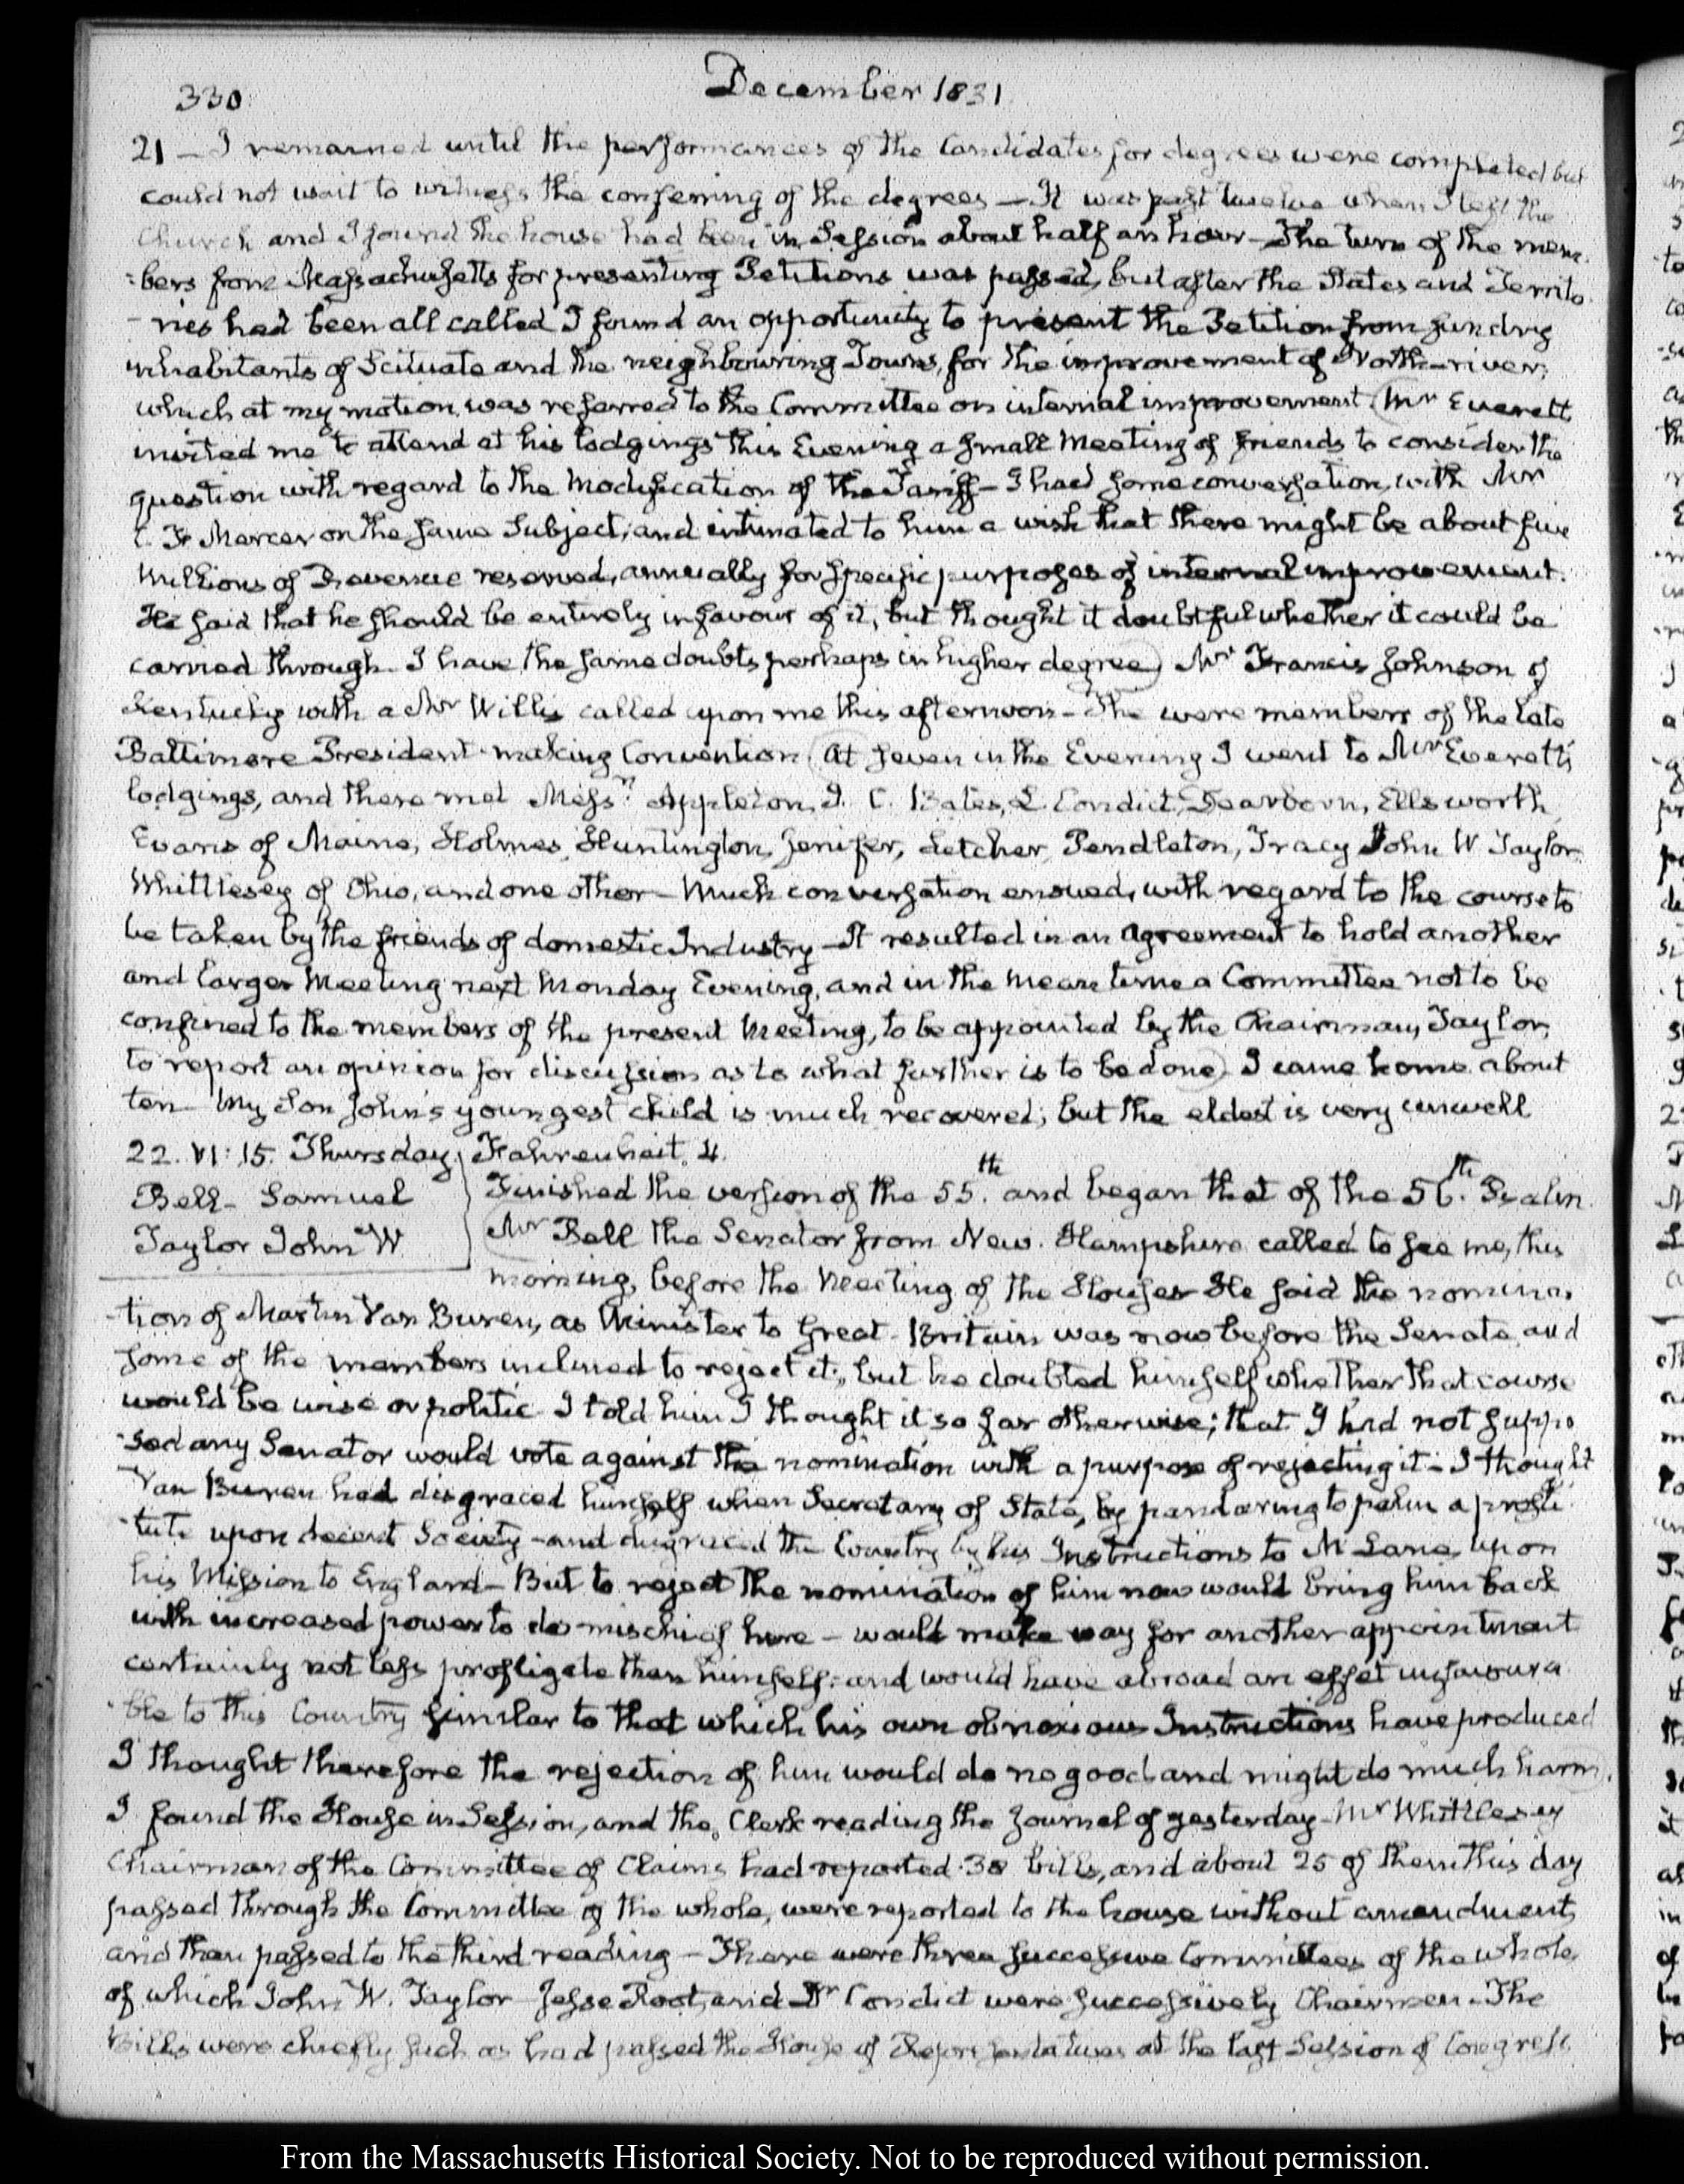 330
December 1831
21 — I remained until the performances of the Candidates for degrees were completed but
could not wait to witness the conferring of the degrees — It was past twelve when I left the
Church and I found the house had been in Session about half an hour — The turn of the mem-
-bers from Massachusetts for presenting Petitions was passed, but after the States and Territo
-ries had been all called I found an opportunity to present the Petition from sundry
inhabitants of Scituate and the neighbouring Towns, for the improvement of North-river;
which at my motion was referred to the Committee on internal improvement. Mr Everett
invited me to attend at his lodgings this Evening a small Meeting of friends to consider the
question with regard to the Modification of the Tariff — I had some conversation, with Mr
C. F. Mercer on the same Subject; and intimated to him a wish that there might be about five
Millions of Revenue reserved, annually for specific purposes of internal improvement.
He said that he should be entirely in favour of it, but thought it doubtful whether it could be
carried through. I have the same doubts perhaps in higher degree. Mr Francis Johnson of
Kentucky with a Mr Willis called upon me this afternoon — The were members of the late
Baltimore President-making Convention. At seven in the Evening I went to Mr Everett's
lodgings, and there met Messrs. Appleton, I. C. Bates, L. Condict, Dearborn, Ellsworth,
Evans of Maine, Holmes, Huntington, Jenifer, Letcher, Pendleton, Tracy, John W Taylor,
Whittlesey of Ohio, and one other — Much conversation ensued, with regard to the course to
be taken by the friends of domestic Industry — It resulted in an agreement to hold another
and larger Meeting next Monday Evening, and in the mean time a Committee not to be
confined to the members of the present Meeting, to be appointed by the Chairman, Taylor,
to report an opinion for discussion as to what further is to be done. I came home about
ten — My Son John's youngest child is much recovered; but the eldest is very unwell
22. VI:15. Thursday Fahrenheit. 4.
Bell — Samuel
Taylor John W
Finished the version of the 55.th and began that of the 56.th Psalm.
Mr Bell the Senator from New-Hampshire called to see me, this
morning, before the Meeting of the Houses. He said the nomina
-tion of Martin Van Buren, as Minister to Great-Britain was now before the Senate, and
some of the members inclined to reject it; but he doubted himself whether that course
would be wise or politic. I told him I thought it so far otherwise; that I had not suppo
-sed any Senator would vote against the nomination with a purpose of rejecting it — I thought
Van Buren had disgraced himself when Secretary of State, by pandering to palm a prosti
-tute upon decent Society — and disgraced the Country by his Instructions to McLane, upon
his Mission to England — But to reject the nomination of him now would bring him back
with increased power to do mischief here — would make way for another appointment
certainly not less profligate than himself: and would have abroad an effet unfavoura
-ble to this Country similar to that which his own obnoxious Instructions have produced
I thought therefore the rejection of him would do no good and might do much harm.
I found the House in Session, and the Clerk reading the Journal of yesterday — Mr Whittlesey
Chairman of the Committee of Claims had reported 38 bills, and about 25 of them this day
passed through the Committee of the whole, were reported to the house without amendment,
and then passed to the third reading — There were three successive Committees of the whole,
of which John W. Taylor Jesse Root, and Dr Condict were successively Chairmen — The
Bills were chiefly such as had passed the House of Representatives at the last Session of Congress
From the Massachusetts Historical Society. Not to be reproduced without permission.